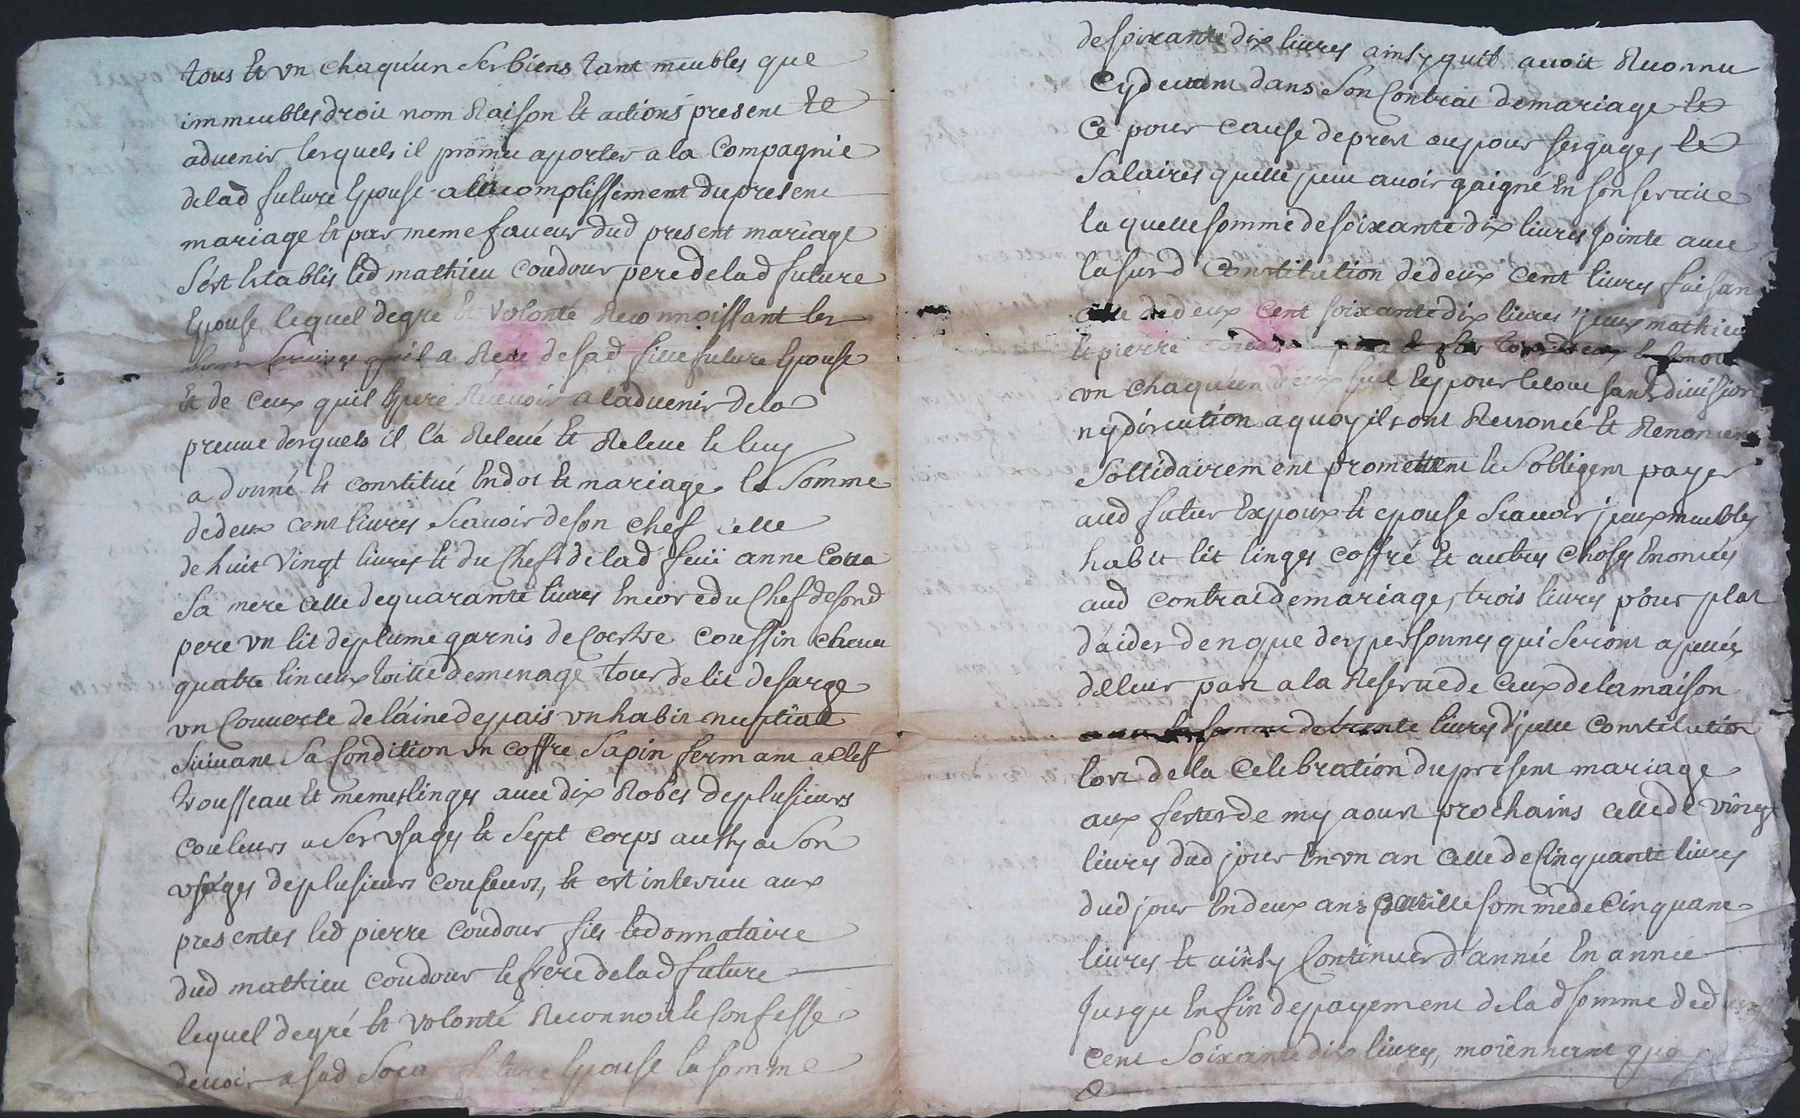 tous et un chaqu'un ses biens tant meubles que
immeubles droit nom Raison et actions present et
advenir lesquels il promit aporter a la Compagnie
delad future Epouse allacomplissement dupresent
mariage et par meme faveur dud present mariage
s'est Establis led mathieu Coudour pere delad future
Epouse lequel degré et volonté Reconnoissant les
qu'il a Receu desad fille future Epouse
et de Ceux quil Espere Recevoir a ladvenir dela
preuve desquels il l'a Relevé et Releve Et luy
a donné et constitué En dot et mariage la Somme
de deux cent livres Scavoir deson chef celle
de huit vingt livres et du Chef delad feüe anne
Sa mere celle dequarante livres Encore du Chef desond
pere un lit deplume garnis de Coertre Coussin
quatre linceux toille demenage tour de lit desarge
un Couverte delaine depais un habit nuptial
Suivant Sa Condition un coffre Sapin fermant a Clef
trousseau et memes linges avec dix Robes deplusieurs
couleurs a Ses Usages et Sept Corps aussy a Son
usages deplusieurs Couleurs, et est intervenu aux
presentes led pierre Coudour fils et donnataire
dud mathieu Coudour et frere delad future
lequel degré et volonté Reconnoit et Confesse
devoir a sad Soeur future Epouse la somme
desoixante dix livres ainsy quil avoit Reconnu
Cydevant dans Son Contrat demariage et
Ce pour Cause depret ou pour ses gages et
Salaires quelle peut avoir gaigné En son service
la quelle somme desoixante dix livres jointe avec
lasusd Constitution dedeux Cent livres faisan
celle dedeux Cent soixante dix livres jceux mathieu
et pierre
un chaqu'un d'eux seul Et pour le tout sans division
ny discution a quoy ils ont Renoncé et Renoncent
Sollidairement promettent et Solligent payer
aud futur Expoux et epouse Scavoir jceux meubles
habit lit linges coffre et autres choses Enoncés
aud contrat demariage, trois livres pour plat
d'aider de noce des personnes qui seront apellés
deleur part a la Reserve de Ceux dela maison
la somme detrente livres d'jcelle Constitution
lors de la Celebration dupresent mariage
aux festes de my aoust prochains celle de vingt
livres dud jour En un an Celle de Cinquante livres
dud jour En deux ans pareille somme de Cinquante
livres et ainsy Continuer d'année En année
Jusque En fin depayement delad somme dedeux
cent Soixante dix livres, moiennant quoy